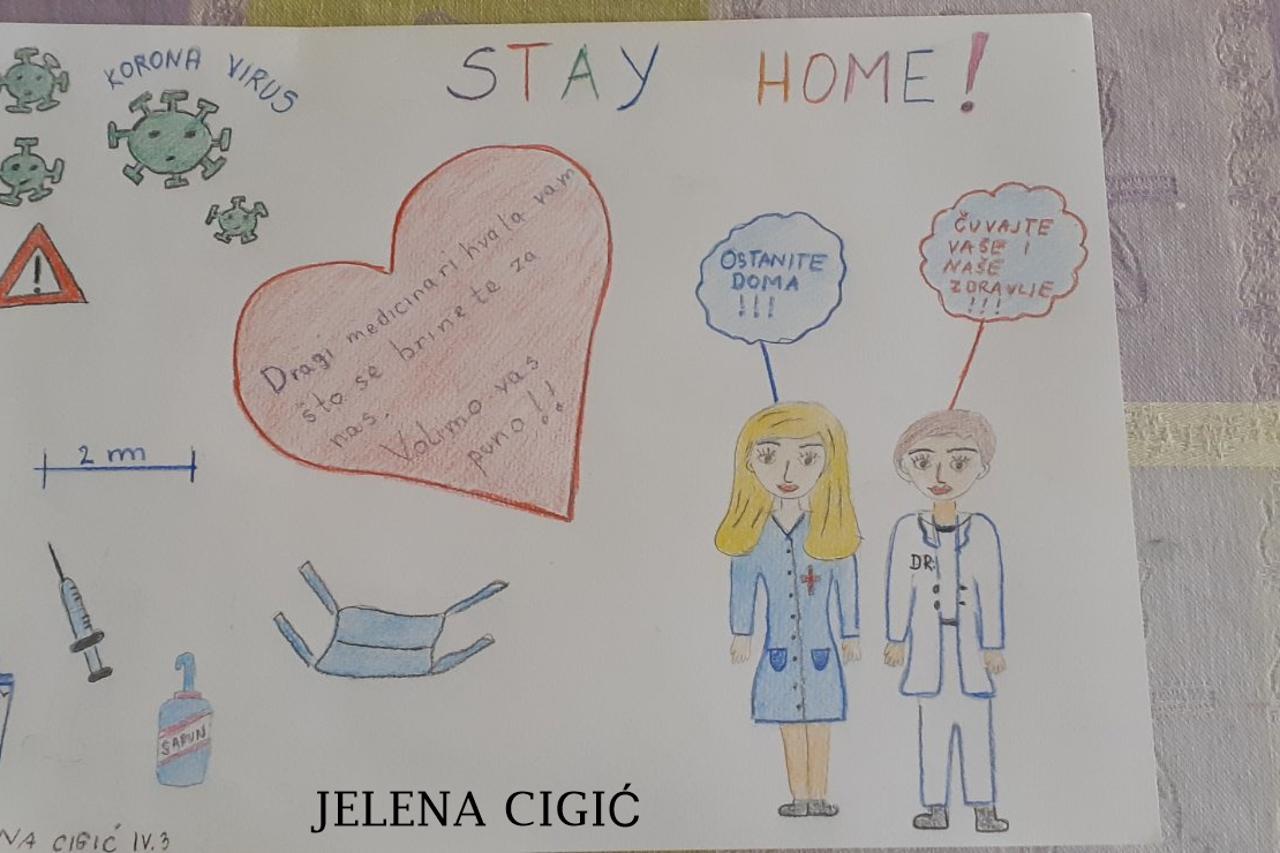 KORONA VIRUS
STAY HOME!
Dragi medicinari hvala vam
što se brinete za
nas.
Volimo vas
puno!!
OSTANITE
DOMA
!!!
ČUVAJTE
VAŠE I
NAŠE
ZDRAVLJE
!!!
2 m
DR.
SAPUN
JELENA CIGIĆ
NA CIGIĆ IV.3